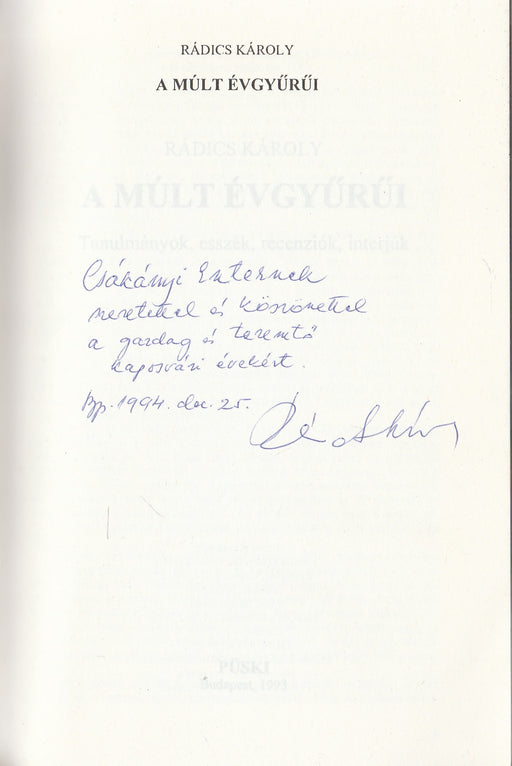 RÁDICS KÁROLY
A MÚLT ÉVGYŰRŰI
RÁDICS KÁROLY
A MÚLT ÉVGYŰRŰI
Tanulmányok, esszék, recenziók, interjúk
Csákányi Eszternek
szeretettel és köszönettel
a gazdag és teremtő
kaposvári évekért.
Bp. 1994. dec. 25.
PÜSKI
Budapest, 1993